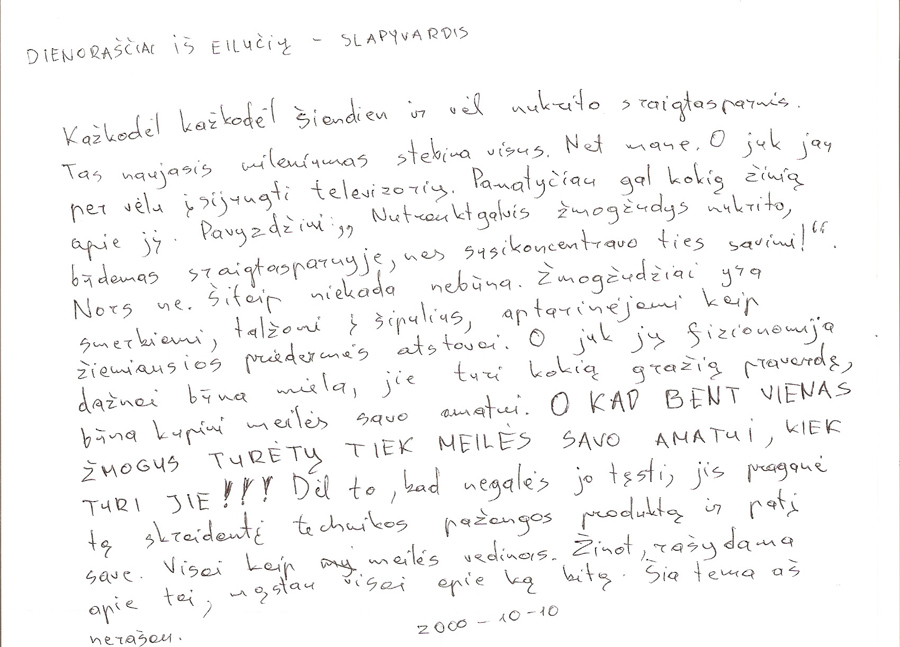 DIENORAŠČIAI IŠ EILUČIŲ – SLAPYVARDIS
Kažkodėl kažkodėl šiendien ir vėl nukrito sraigtasparnis.
Tas naujasis mileniumas stebina visus. Net mane. O juk jau
per vėlu įsijungti televizorių. Pamatyčiau gal kokią žinią
apie jį. Pavyzdžiui: „Nutrauktgalvis žmogžudys nukrito,
būdamas sraigtasparnyje, nes susikoncentravo ties savimi!“.
Nors ne. Šiteip niekada nebūna. Žmogžudžiai yra
smerkiami, talžomi į šipulius, aptarinėjami kaip
žiemiausios priedermės atstovai. O juk jų fizionomija
dažnai būna miela, jie turi kokią gražią pravardę,
būna kupini meilės savo amatui. O KAD BENT VIENAS
ŽMOGUS TURĖTŲ TIEK MEILĖS SAVO AMATUI, KIEK
TURI JIE!!! Dėl to, kad negalės jo tęsti, jis pragąnė
tą skraidantį technikos pažangos produktą ir patį
save. Visai kaip meilės vedinais. Žinot, rašydama
apie tai, mąstau visai apie ką kitą. Šia tema aš
nerašau. 2000-10-10